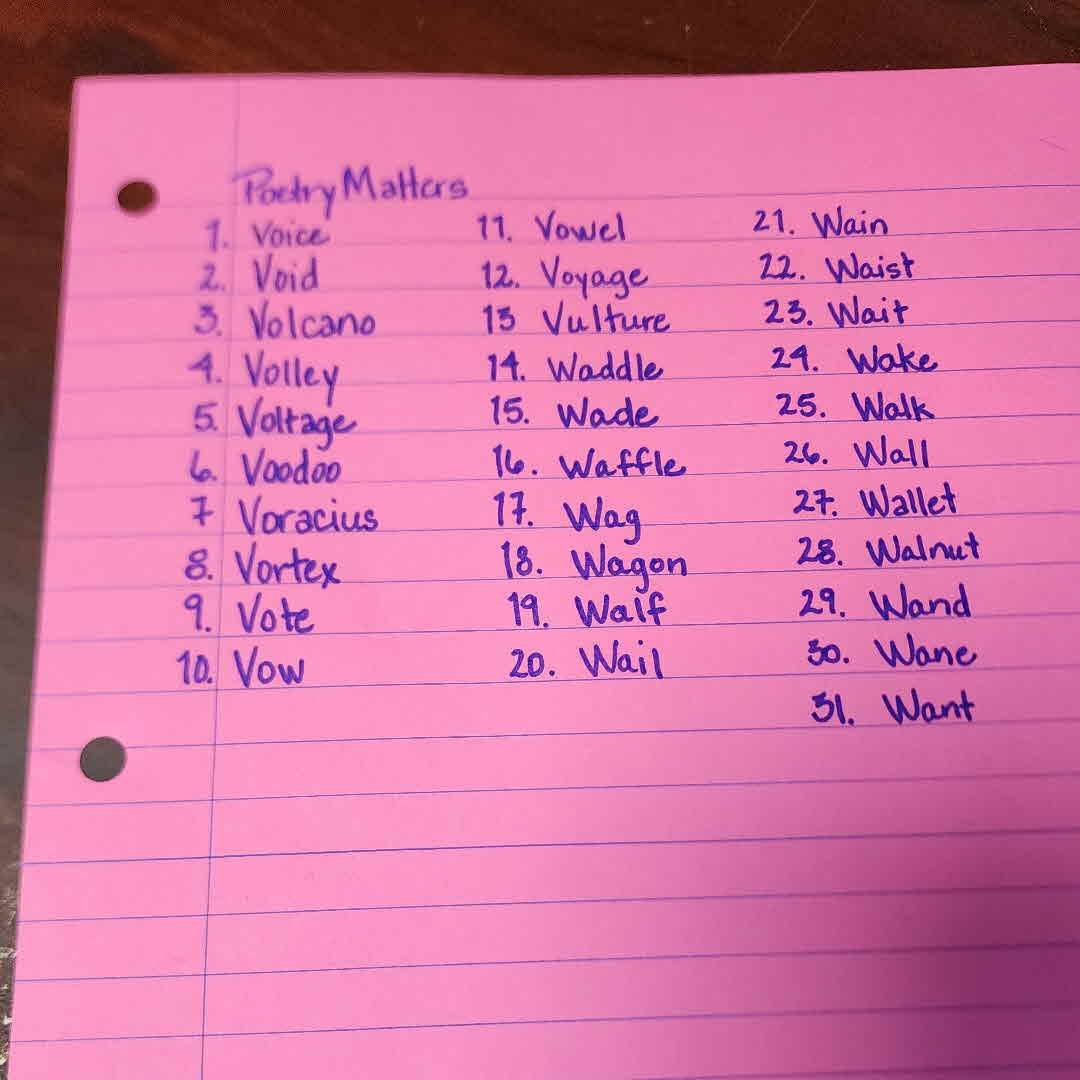 Poetry Matters
1. Voice
2. Void
3. Volcano
4. Volley
5. Voltage
6. Voodoo
7 Voracius
8. Vortex
9. Vote
10. Vow
11. Vowel
12. Voyage
13 Vulture
14. Waddle
15. Wade
16. Waffle
17. Wag
18. Wagon
19. Walf
20. Wail
21. Wain
22. Waist
23. Wait
24. Wake
25. Walk
26. Wall
27. Wallet
28. Walnut
29. Wand
30. Wane
31. Want